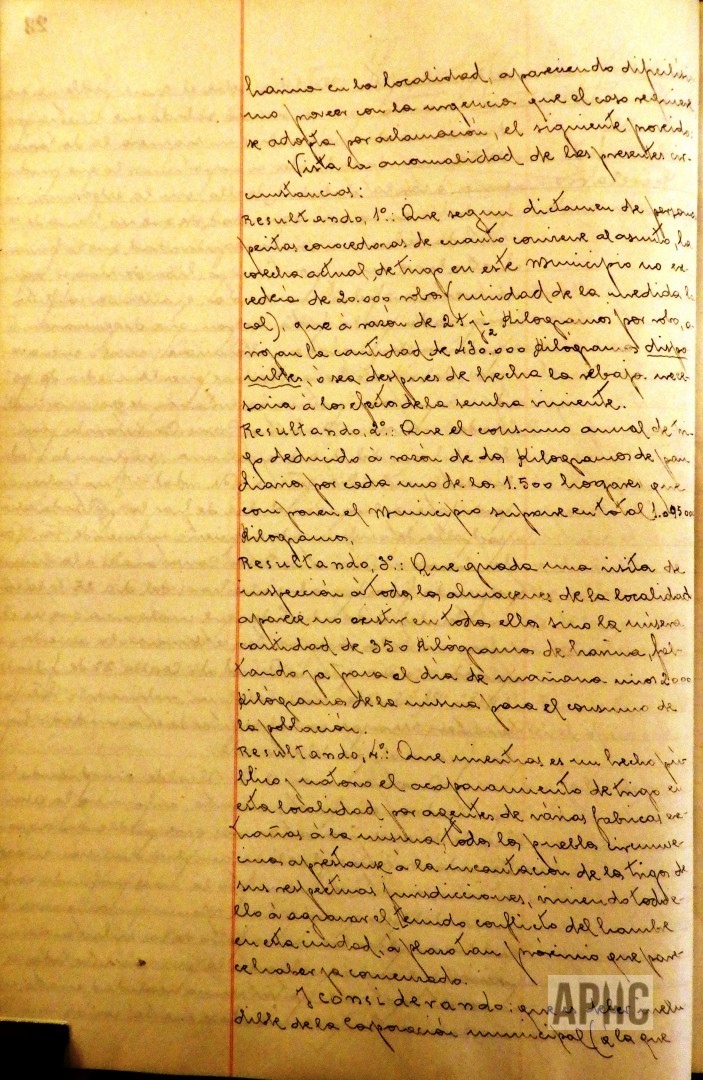 harina en la localidad, apareciendo dificilísi-
mo proveer con la urgencia que el caso requiere
se adopta por aclamación, el siguiente proveido.
Vista la anomalidad de las presentes cir-
cunstancias:
Resultando, 1º.: Que segun dictamen de personas
peritas conocedoras de cuanto concierne al asunto, la
cosecha actual de trigo en este Municipio no ex-
cederá de 20.000 robos (unidad de la medida lo-
cal), que á razón de 21 y ½ Kilogramos por robo, a-
rrojan la cantidad de 430.000 Kilogramos dispo-
nibles, ó sea despues de hecha la rebaja nece-
saria á los efectos de la sembra
Resultando, 2º.: Que el consumo anual de tri-
go deducido á razón de dos Kilogramos de pan
diarios por cada uno de los 1.500 hogares que
componen el Municipio supone en total 1.095000
Kilogramos.
Resultando, 3º.: Que girada una visita de
inspección á todos los almacenes de la localidad
aparece no existir en todos ellos sino la mísera
cantidad de 350 Kilógramos de harina, fal-
tando ya para el día de mañana unos 2000
Kilógramos de la misma para el consumo de
la población.
Resultando, 4º.: Que mientras es un hecho pú-
blico y notorio el acaparamiento de trigo en
esta localidad por agentes de várias fabricas ex-
trañas á la misma, todos los pueblos circunve-
cinos apréstanse á la incautación de los trigos de
sus respectivas jurisdicciones, viniendo todo
ello á agravar el temido conflicto del hambre
en esta ciudad, á plazo tan próximo que pare-
ce haber ya comenzado.
Y considerando: que es deber inelu-
dible de la Corporación municipal (a la que
APHC
22